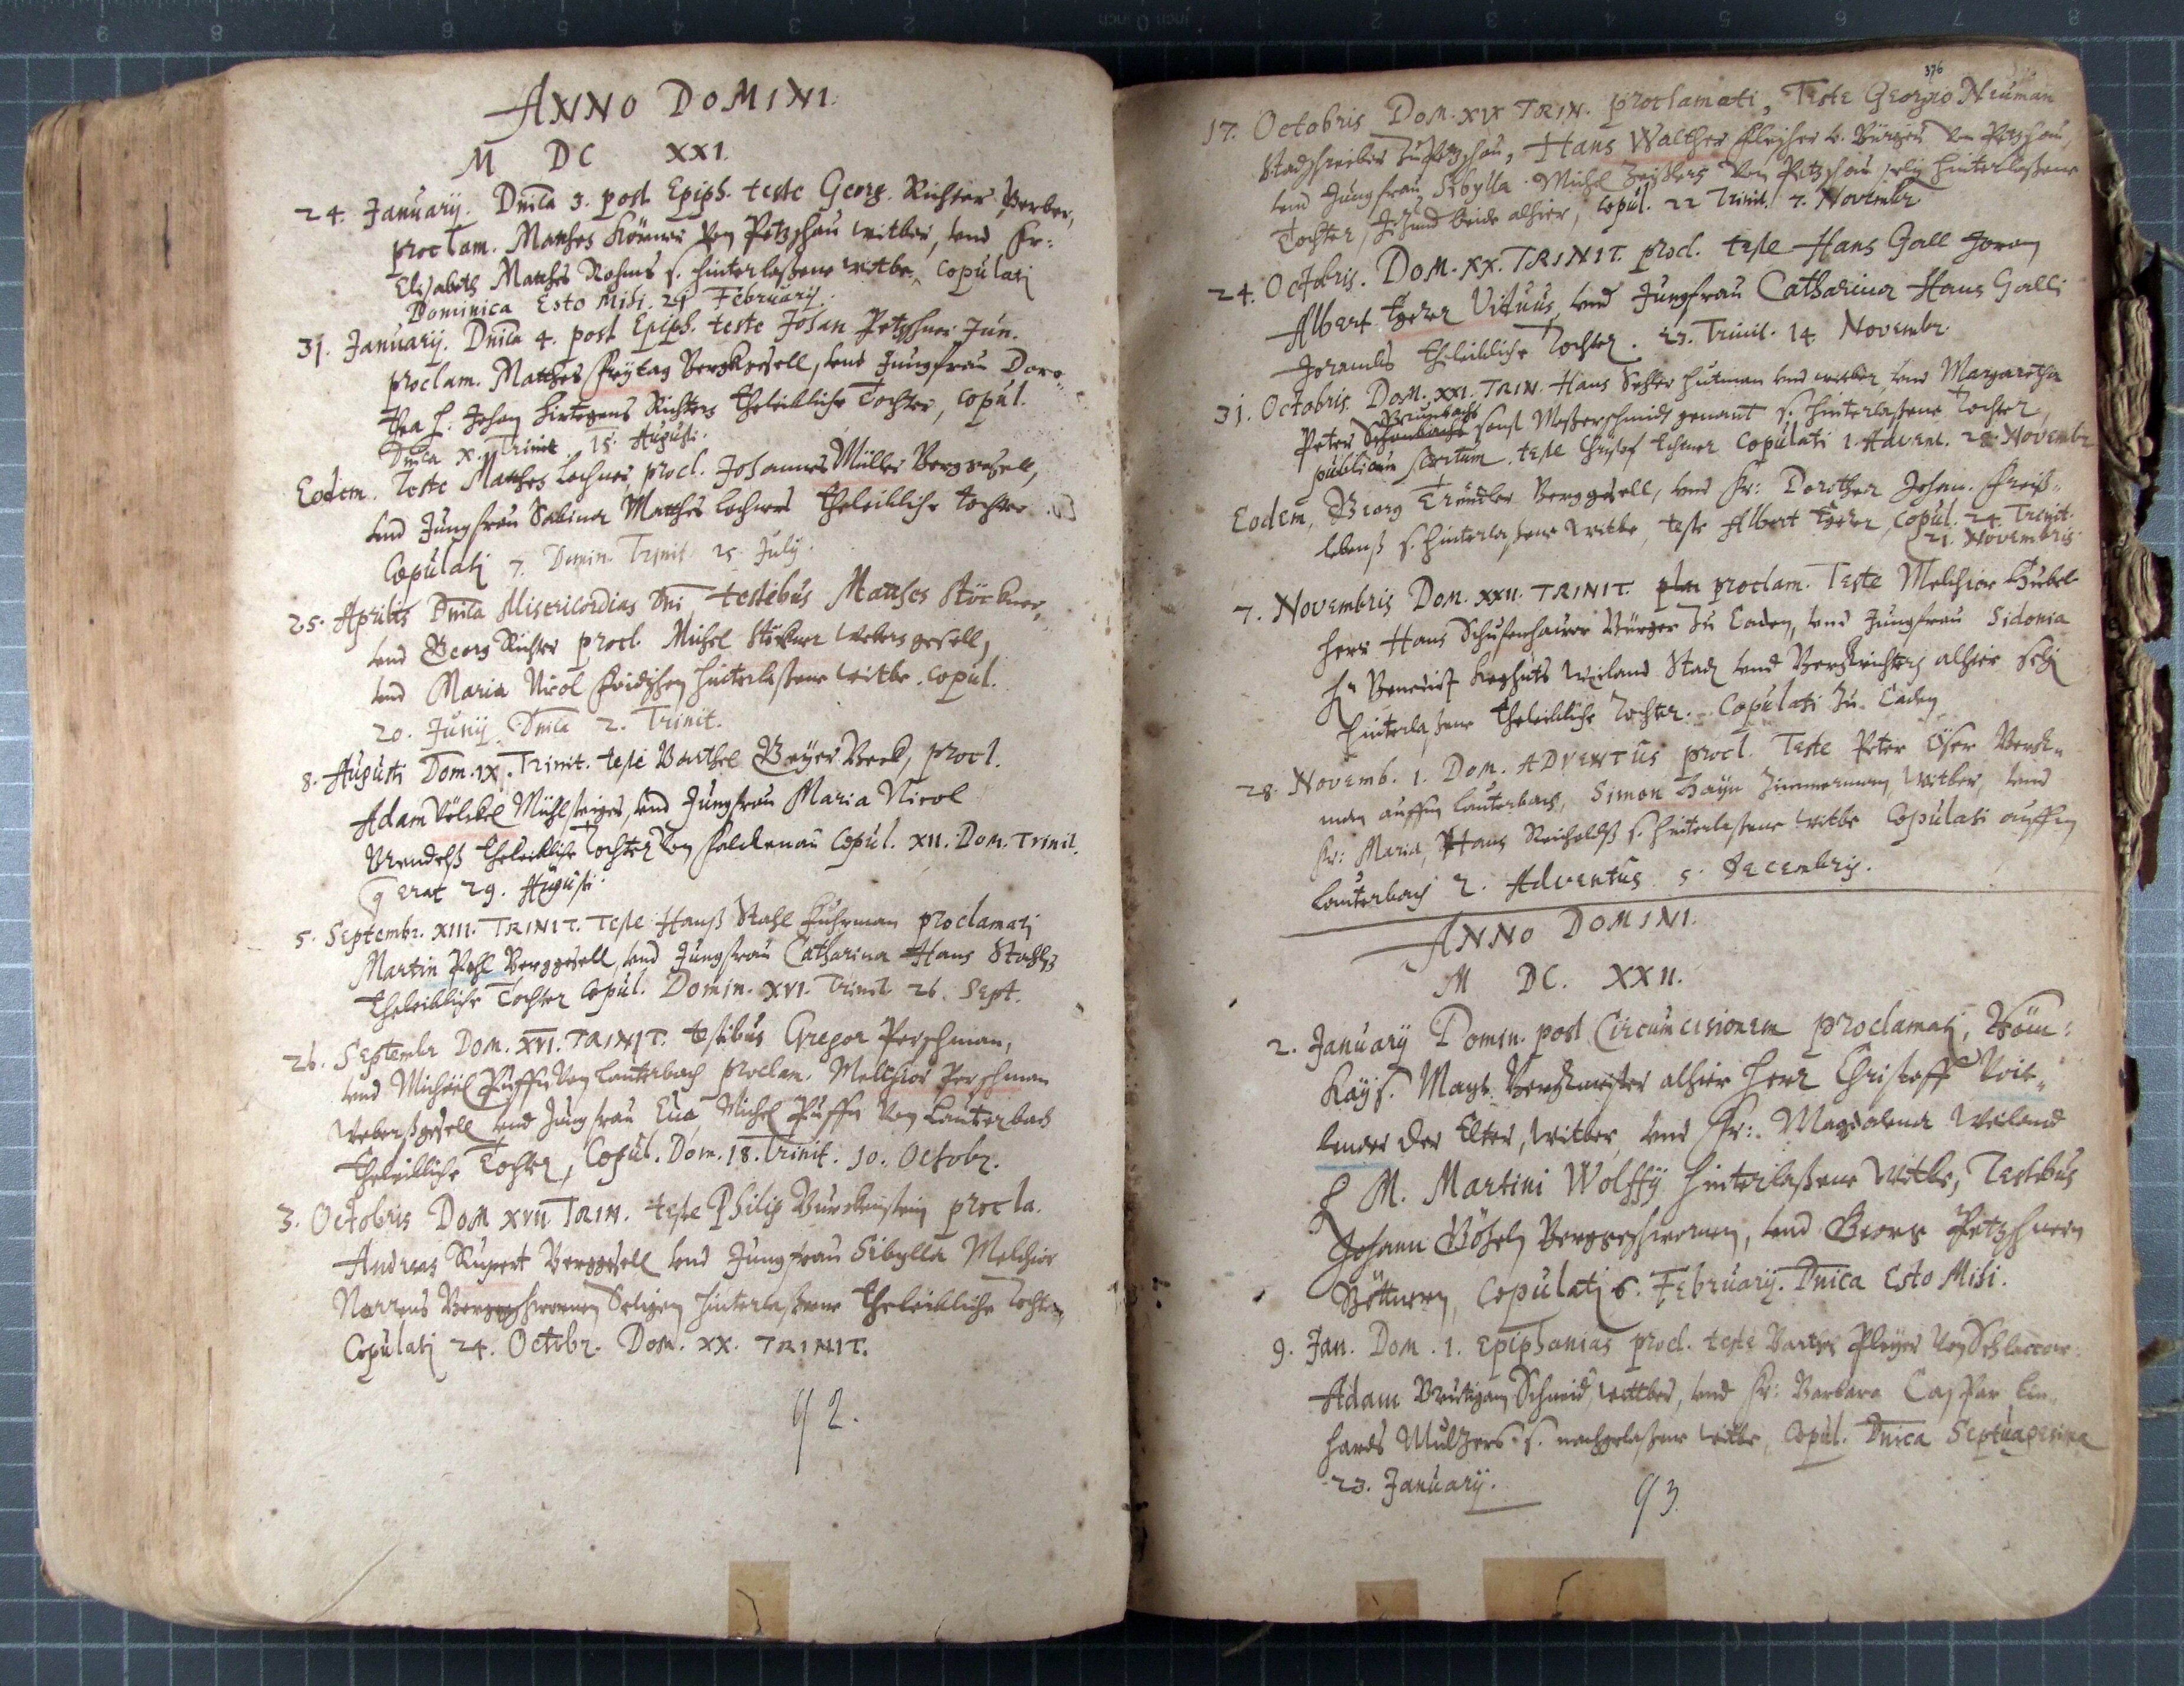 ANNO DOMINI.
M DC XXI.
24. January. Dnica 3. post Epiph. teste Georg. Richter Berber,
proclam. Matthes Körner von Petzschau witber, vnd Fr:
Elisabeth Matthes Rohms s. hinterlaßene witbe, Copulati
Dominica Esto Mihi. 21 February.
31. January. Dnica 4. post Epiph. teste Johan Petzschner Jun.
proclam. Matthes Freytag Bergkgesell, vnd Jungfrau Doro-
thea H. Johan Hirtegens Richters Eheleibliche Tochter, copul.
Dnica X. Trinit. 15. Augusti.
Eodem. Teste Matthes Lochner, procl. Johannes Müller Berggesell,
vnd Jungfrau Sabina Matthes Lochners Eheleibliche Tochter
Copulati 7. Domin. Trinit. 25. July.
25. Aprilis Dnica Misericordias Dni, testibus Matthes Stöckner,
vnd Georg Richter procl. Michel Stöckner Webers gesell,
vnd Maria Nicol hinterlaßene witbe. Copul.
20. Juny Dnica 2. Trinit.
8. Augusti Dom. IX. Trinit. teste Barthel Beyer Beck, procl.
Adam Völckel Mühlsteiger, vnd Jungfrau Maria Nicol
Brendels Eheleibliche Tochter von Falckenau Copul. XII. Dom. Trinit.
q erat 29. Augusti.
5. Septembr. XIII. TRINIT. Teste Hanß Stahl Fuhrman proclamati
Martin Pohl Berggesell, vnd Jungfrau Catharina Hans Stahls
Eheleibliche Tochter Copul. Domin. XVI. Trinit. 26. Sept.
26. Septembr Dom. XVI. TRINIT. testibus Gregor Perschman,
vnd Michael Püffer von Lauterbach proclam. Melchior Perschman
Weberßgesell vnd Jungfrau Eua, Michel Püffers von Lauterbach
Eheleibliche Tochter, Copul. Dom. 18. Trinit. 10. Octobr.
3. Octobris Dom XVII TRIN. teste Philip Burckenstein procla.
Andreas Rupert Berggesell vnd Jungfrau Sibylla Melchior
Narrens Berggeschwornen Seligen hinterlaßene Eheleibliche Tochter,
Copulati 24. Octobr. Dom. XX. TRINIT.
92.
376
17. Octobris Dom. XIX TRIN. proclamati, Teste Georgio Neuman
Stadschreiber zu Petzschau, Hans Walther Fleischer v. Bürger von Petzschau,
vnd Jungfrau Sibylla Michel Zeislers von Petzschau selig hinterlaßene
Tochter, Itzund beide alhier, copul. 22 Trinit. 7. Novembr
24. Octobris. Dom. XX. TRINIT. procl. teste Hans Gall Joram
Albert Viduus, vnd Jungfrau Catharina Hans Galli
Joramls Eheleibliche Tochter. 23. Trinit. 14. Novembr.
31. Octobris. Dom. XXI. TRIN. Hans Hutman vnd witber vnd Margaretha
Brunbachs
Peter sonst Messerschmidt genant s. hinterlaßene Tochter,
publicum scortum. teste Christof Copulati 1. Advent. 28. Novembr
Eodem, Georg Tröndler Berggesell, vnd Fr: Dorothea Johan. Freiß-
lebenß s. hinterlaßene Witbe, teste Albert, copul. 24. Trinit.
21. Novembris.
7. Novembris Dom. XXII. TRINIT. proclam. Teste Melchior Hübel
Herr Hans Bürger zu Caden, vnd Jungfrau Sidonia
Hr Benedict Weiland Stad vnd Bergkrichters alhier selig
hinterlaßene Eheleibliche Tochter. Copulati zu Caden
28. Novemb. 1. Dom. ADVENTUS procl. Teste Peter Öser Bergk-
man auffm Lauterbach, Simon Hayn Zimmerman, Witber, vnd
Fr: Maria, Hans Reicholdß s. hinterlaßene Witbe Copulati auffm
Lauterbach 2. Adventus 5. Decembris.
ANNO DOMINI.
M DC. XXII.
2. January Domin. post Circumcisionem proclamati, Röm:
Kays. Mayt. Bergkmeister alhier Herr Christoff Voit-
lender der Elter, Witber, vnd Fr: Magdalena Weiland
H M. Martini Wolffy hinterlaßene Witbe, Testibus
Johann Bergkgeschwornen, vnd Georg Petzschnern
Copulati 6. February. Dnica Esto Mihi.
9. Jan. Dom. 1. Epiphanias procl. teste Barthel Pleyer von
Adam Breutigam Schmid, wittber, vnd Fr: Barbara Caspar Lin-
hards Multzers s. nachgelaßene witbe, Copul. Dnica Septuagesima
23. January.
93.